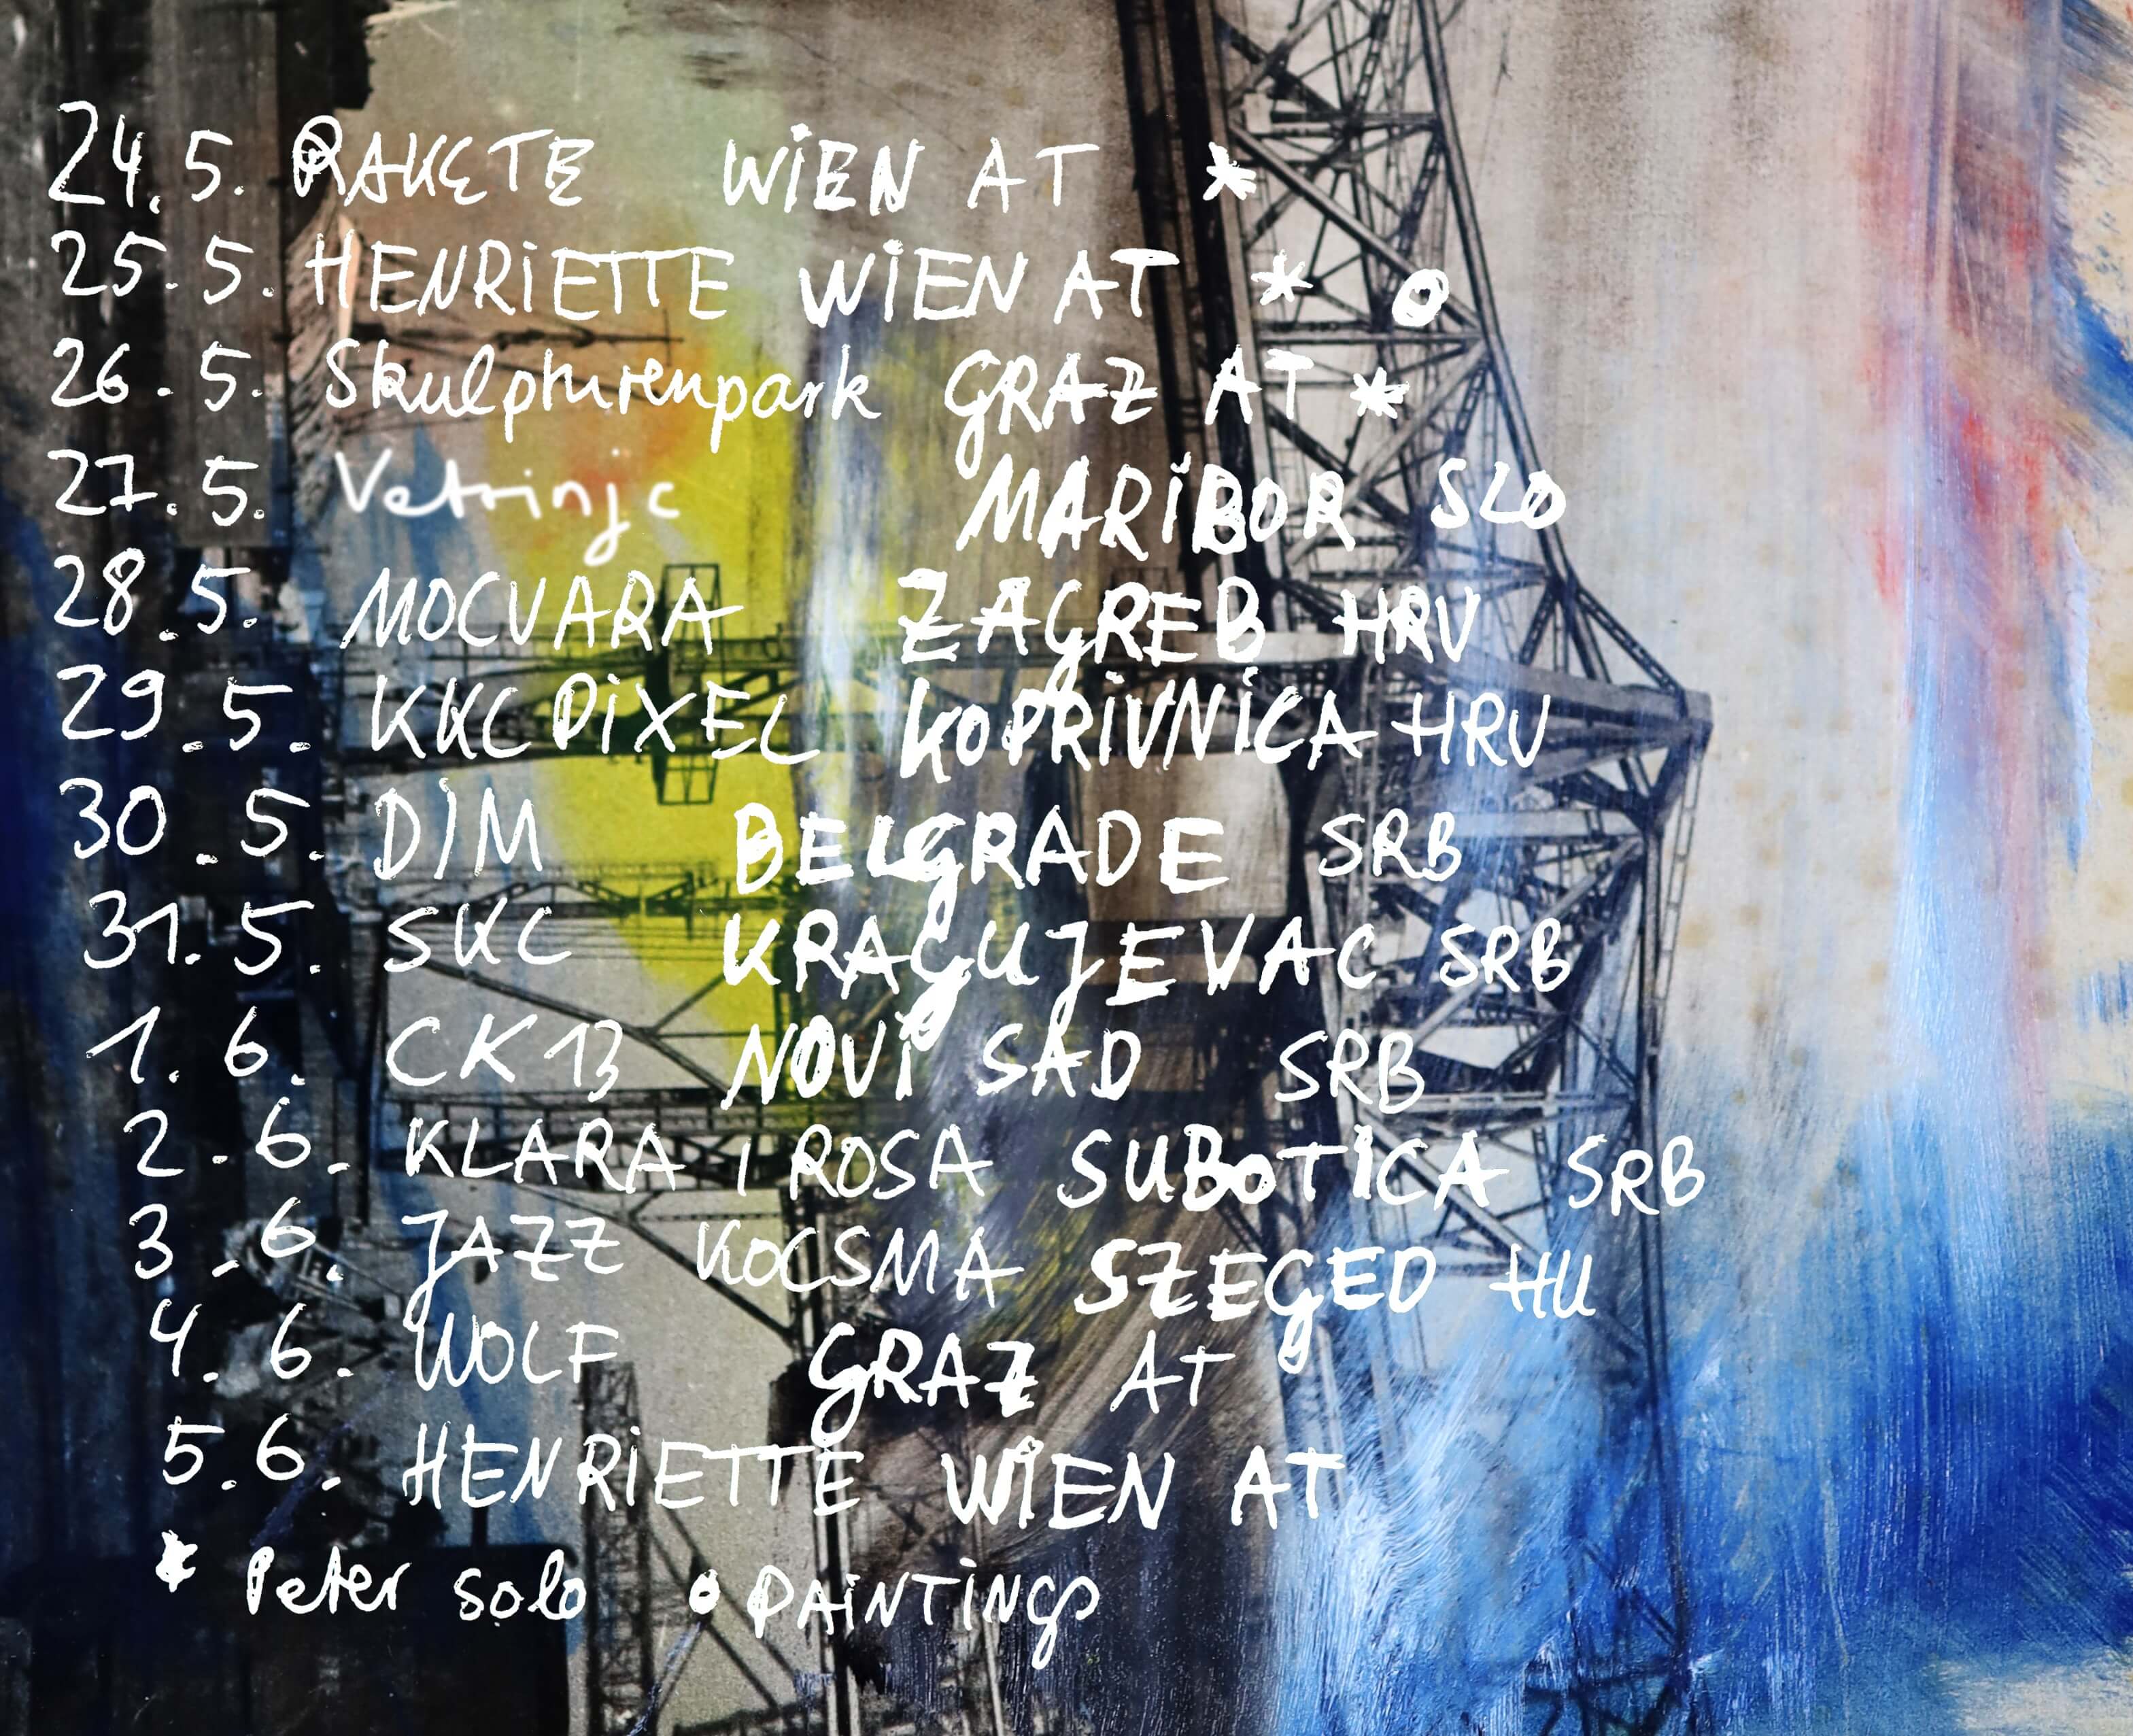 24.5. RAKETE WIEN AT *
25.5. HENRIETTE WIEN AT * o
26.5. Skulpturenpark GRAZ AT *
27.5. Vetrinjc MARIBOR SLO
28.5. MOCVARA ZAGREB HRV
29.5. KKC PIXEL KOPRIVNICA HRV
30.5. DIM BELGRADE SRB
31.5. SKC KRAGUJEVAC SRB
1.6. CK13 NOVI SAD SRB
2.6. KLARA I ROSA SUBOTICA SRB
3.6. JAZZ KOCSMA SZEGED HU
4.6. WOLF GRAZ AT
5.6. HENRIETTE WIEN AT
* Peter solo o PAINTINGS